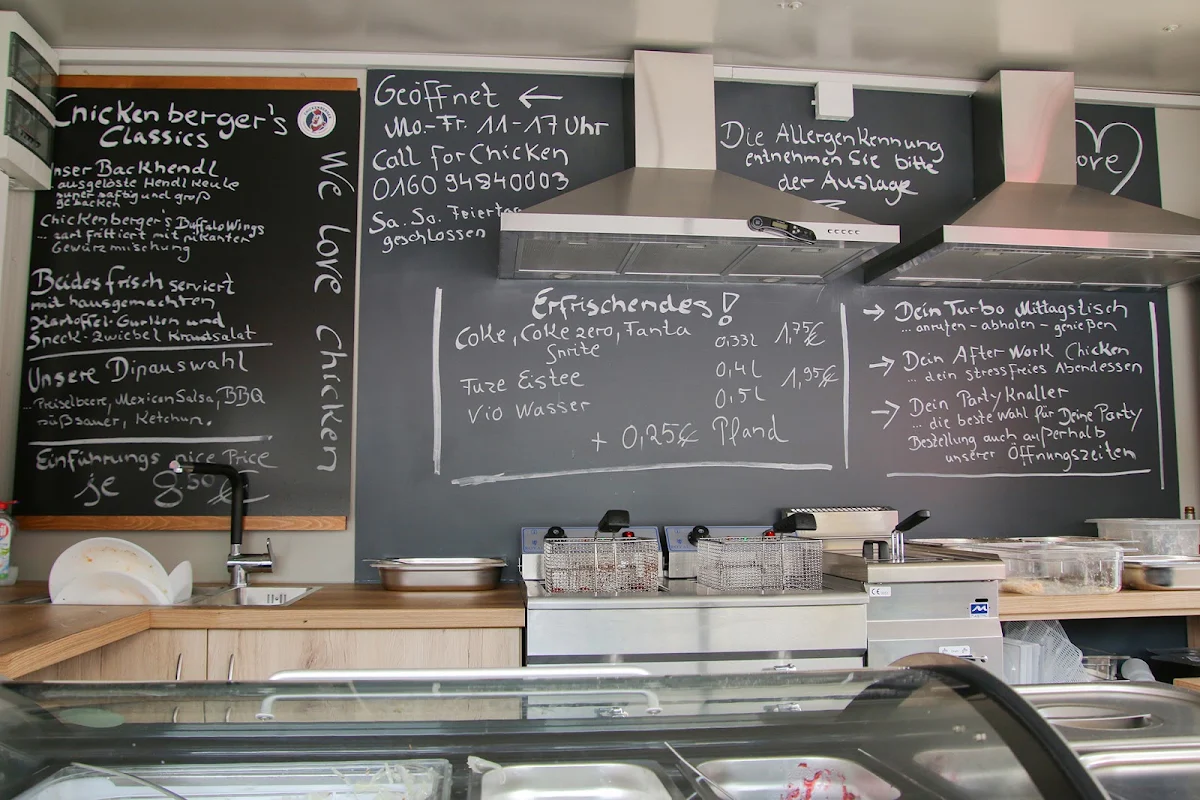 Chickenberger's
Classics
unser Backhendl
...ausgelöste Hendl Keule
super saftig und groß
gebacken
Chickenberger's Buffalo Wings
... zart frittiert mit pikanter
Gewürzmischung
Beides frisch serviert
mit hausgemachten
Kartoffel-Gurken und
Speck-Zwiebel Krautsalat
Unsere Dipauswahl
...Preiselbeere, Mexican Salsa, BBQ
süßsauer, Ketchup.
Einführungs nice Price
je 8,50€
We love Chicken
Geöffnet ←
Mo.-Fr. 11-17 Uhr
Call for Chicken
0160 94840003
Sa. So. Feiertag
geschlossen
Die Allergenkennung
entnehmen Sie bitte
der Auslage
love
Erfrischendes!
Coke, Coke zero, Fanta 0,33l 1,75€
Sprite
Fuze Eistee 0,4l 1,95€
Vio Wasser 0,5l
+ 0,25€ Pfand
→ Dein Turbo Mittagstisch
... anrufen - abholen - genießen
→ Dein After Work Chicken
... dein stressfreies Abendessen
→ Dein Party Knaller
... die beste Wahl für Deine Party
Bestellung auch außerhalb
unserer Öffnungszeiten
CE